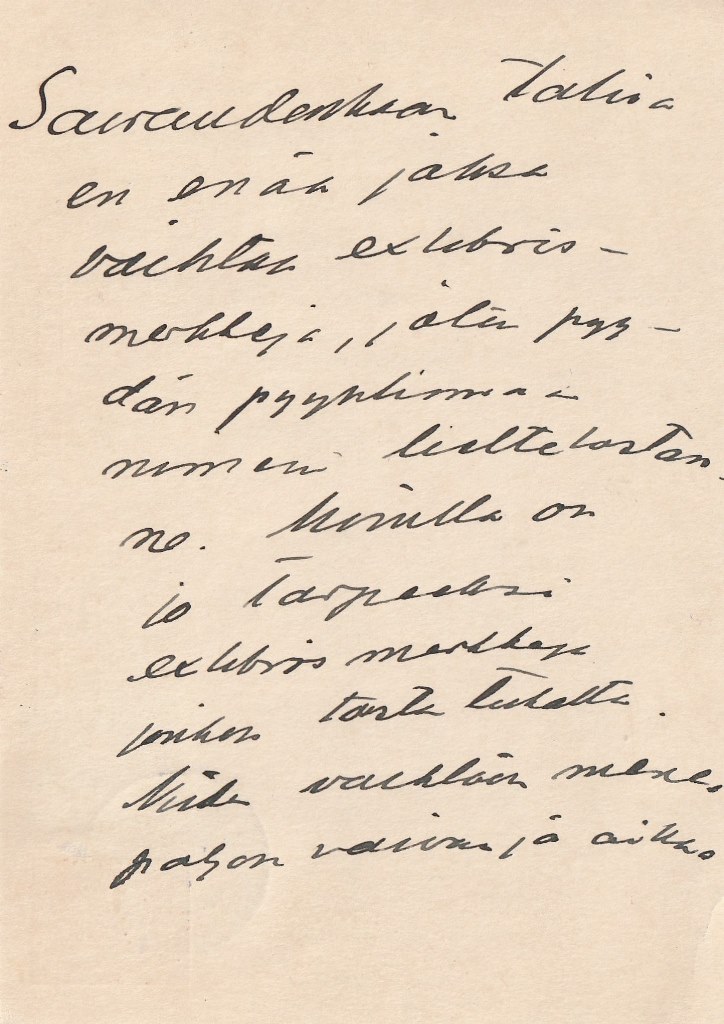 Sairauden takia
en enää jaksa
vaihtaa exlibris-
merkkejä, joten pyy-
dän pyyhkimään
nimeni luettelostan-
ne. Minulla on
jo tarpeeksi
exlibris merkkejä
toista tuhatta.
Niiden vaihtoon menee
paljon vaivaa ja aikaa